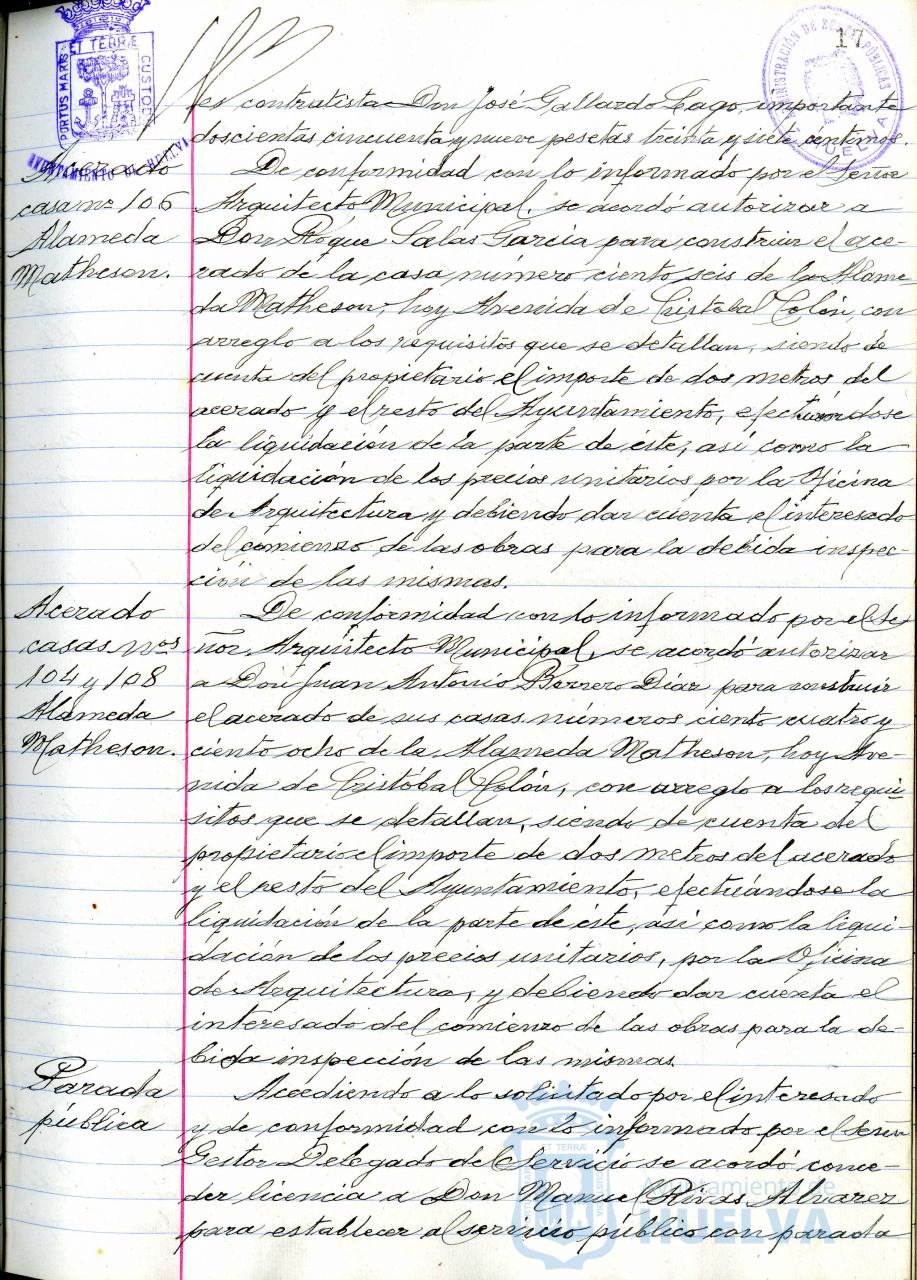 17
PORTUS MARIS ET TERRÆ CUSTODIA
AYUNTAMIENTO DE HUELVA
es contratista Don José Gallardo Lago, importante
doscientas cincuenta y nueve pesetas treinta y siete céntimos.
Acerado
casa nº 106
Alameda
Matheson.
De conformidad con lo informado por el Señor
Arquitecto Municipal, se acordó autorizar a
Don Roque Salas García para construir el ace-
rado de la casa número ciento seis de la Alame-
da Matheson, hoy Avenida de Cristóbal Colón, con
arreglo a los requisitos que se detallan, siendo de
cuenta del propietario el importe de dos metros del
acerado y el resto del Ayuntamiento, efectuándose
la liquidación de la parte de éste, así como la
liquidación de los precios unitarios por la Oficina
de Arquitectura y debiendo dar cuenta el interesado
del comienzo de las obras para la debida inspec-
ción de las mismas.
Acerado
casas nos
104 y 108
Alameda
Matheson.
De conformidad con lo informado por el Se-
ñor Arquitecto Municipal, se acordó autorizar
a Don Juan Antonio Borrero Díaz para construir
el acerado de sus casas números ciento cuatro y
ciento ocho de la Alameda Matheson, hoy Ave-
nida de Cristóbal Colón, con arreglo a los requi-
sitos que se detallan, siendo de cuenta del
propietario el importe de dos metros del acerado
y el resto del Ayuntamiento, efectuándose la
liquidación de la parte de éste, así como la liqui-
dación de los precios unitarios, por la Oficina
de Arquitectura, y debiendo dar cuenta el
interesado del comienzo de las obras para la de-
bida inspección de las mismas.
Parada
pública
Accediendo a lo solicitado por el interesado
y de conformidad con lo informado por el Señor
Gestor Delegado del Servicio se acordó conce-
der licencia a Don Manuel Rivas Alvarez
para establecer al servicio público con parada
Ayuntamiento de
HUELVA